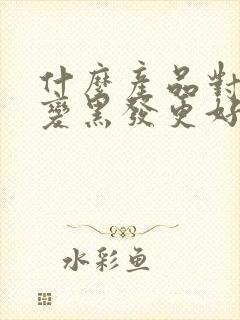 什麼產品對
變黑發更好
水彩魚